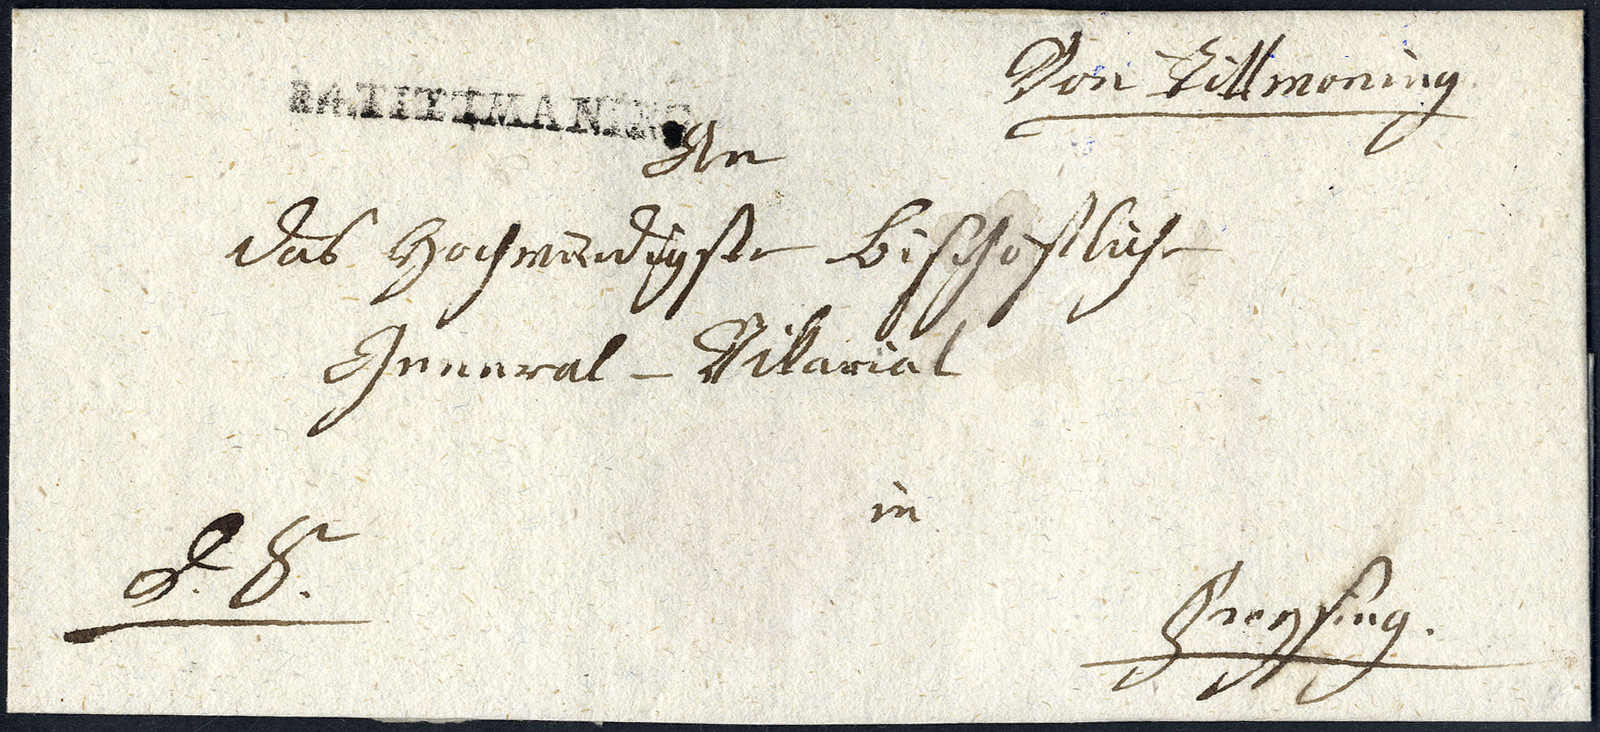 Von Tittmoning
R4.TITTMANING
An
das Hochwürdigste Bischöfliche
General – Vikariat
in
D. S.
Freysing.